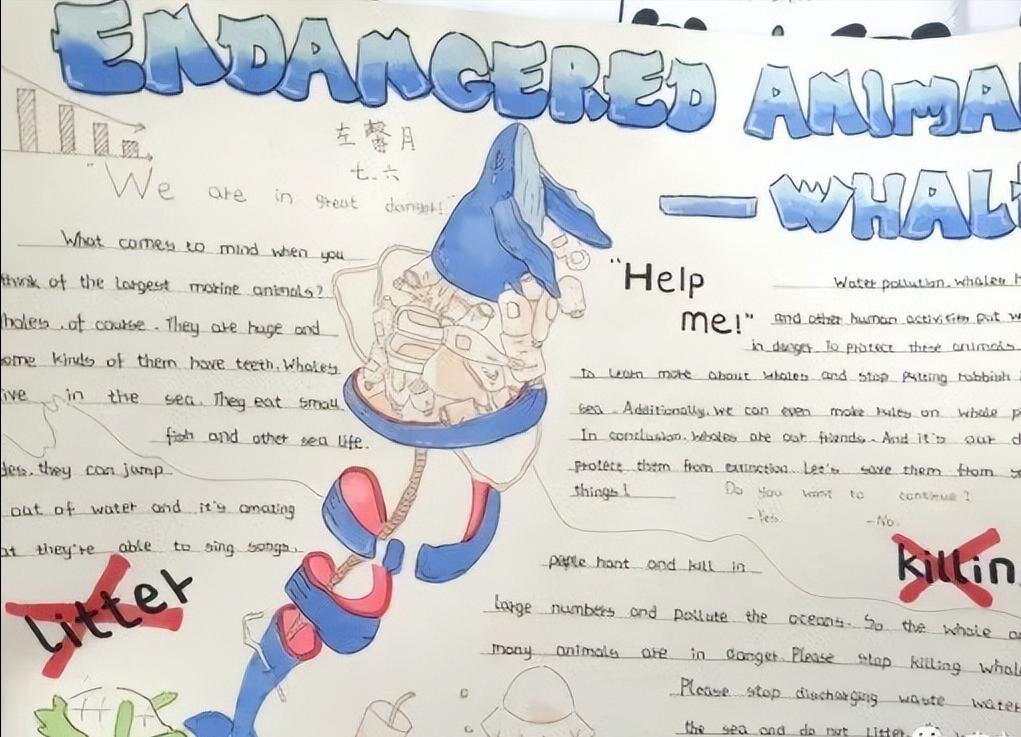 ENDANGERED ANIMA
— WHAL
左馨月
七.六
"We are in great dangr!"
What comes to mind when you
think of the largest marine animals?
hales, of course. They are huge and
ome kinds of them have teeth. Whales
ive in the sea. They eat small
fish and other sea life.
des, they can jump
out of water and it's amazing
at they're able to sing songs.
Litter
"Help
me!"
Water pollution, whales h
and other human activities put w
in danger. To protect these animals
to learn more about whales and stop putting rubbish i
sea. Additionally, we can even make rules on whale p
In conclusion, whales are our friends. And it's our d
protect them from extinction. Let's save them from s
things!
Do you want to continue?
-Yes. -No.
killin
people hunt and kill in
large numbers and pollute the oceans. So the whale a
many animals are in danger. Please stop killing whal
Please stop discharging waste water
the sea and do not litter.